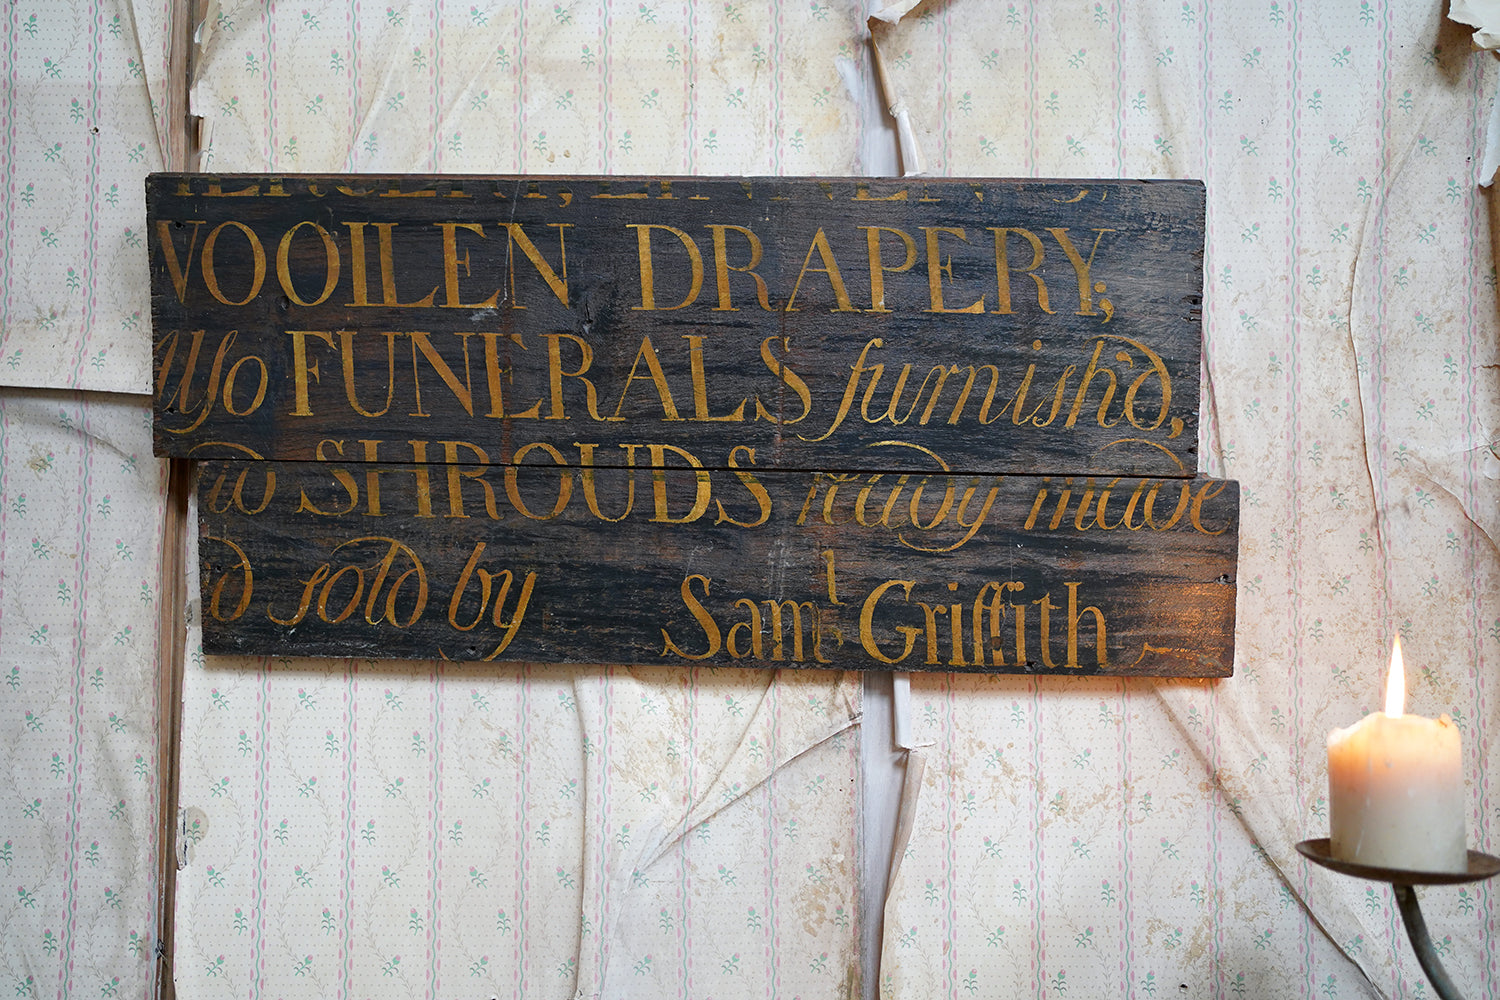 WOOLLEN DRAPERY;
Also FUNERALS furnish'd,
SHROUDS ready made
d sold by Saml Griffith